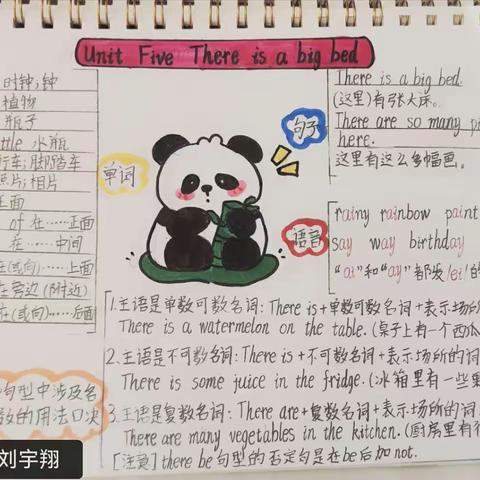 Unit Five There is a big bed
时钟;钟
植物
瓶子
水瓶
行车;脚踏车
照片;相片
正面
of 在……正面
在……中间
在(或向)……上面
在旁边(附近)
在(或向)……后面
单词
句子
There is a big bed.
(这里)有张大床。
There are so many pi
here.
这里有这么多幅画。
语音
rainy rainbow paint
say way birthday
"ai"和"ay"都发/ei/的
1.主语是单数可数名词: There is+单数可数名词+表示场所
There is a watermelon on the table. (桌子上有一个西瓜
2.主语是不可数名词: There is+不可数名词+表示场所的词
There is some juice in the fridge. (冰箱里有一些果
3.主语是复数名词: There are+复数名词+表示场所的词
There are many vegetables in the kitchen. (厨房里有
[注意] there be句型的否定句是在be后加not.
句型中涉及名
数的用法口决
刘宇翔